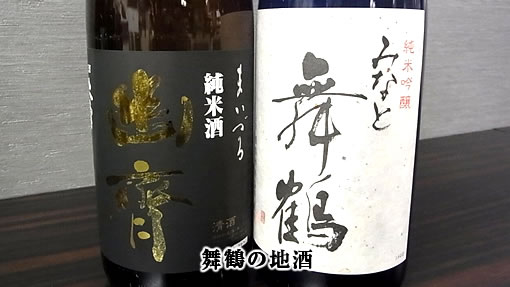 まいづる
純米酒
幽斎
清酒
純米吟醸
みなと
舞鶴
舞鶴の地酒